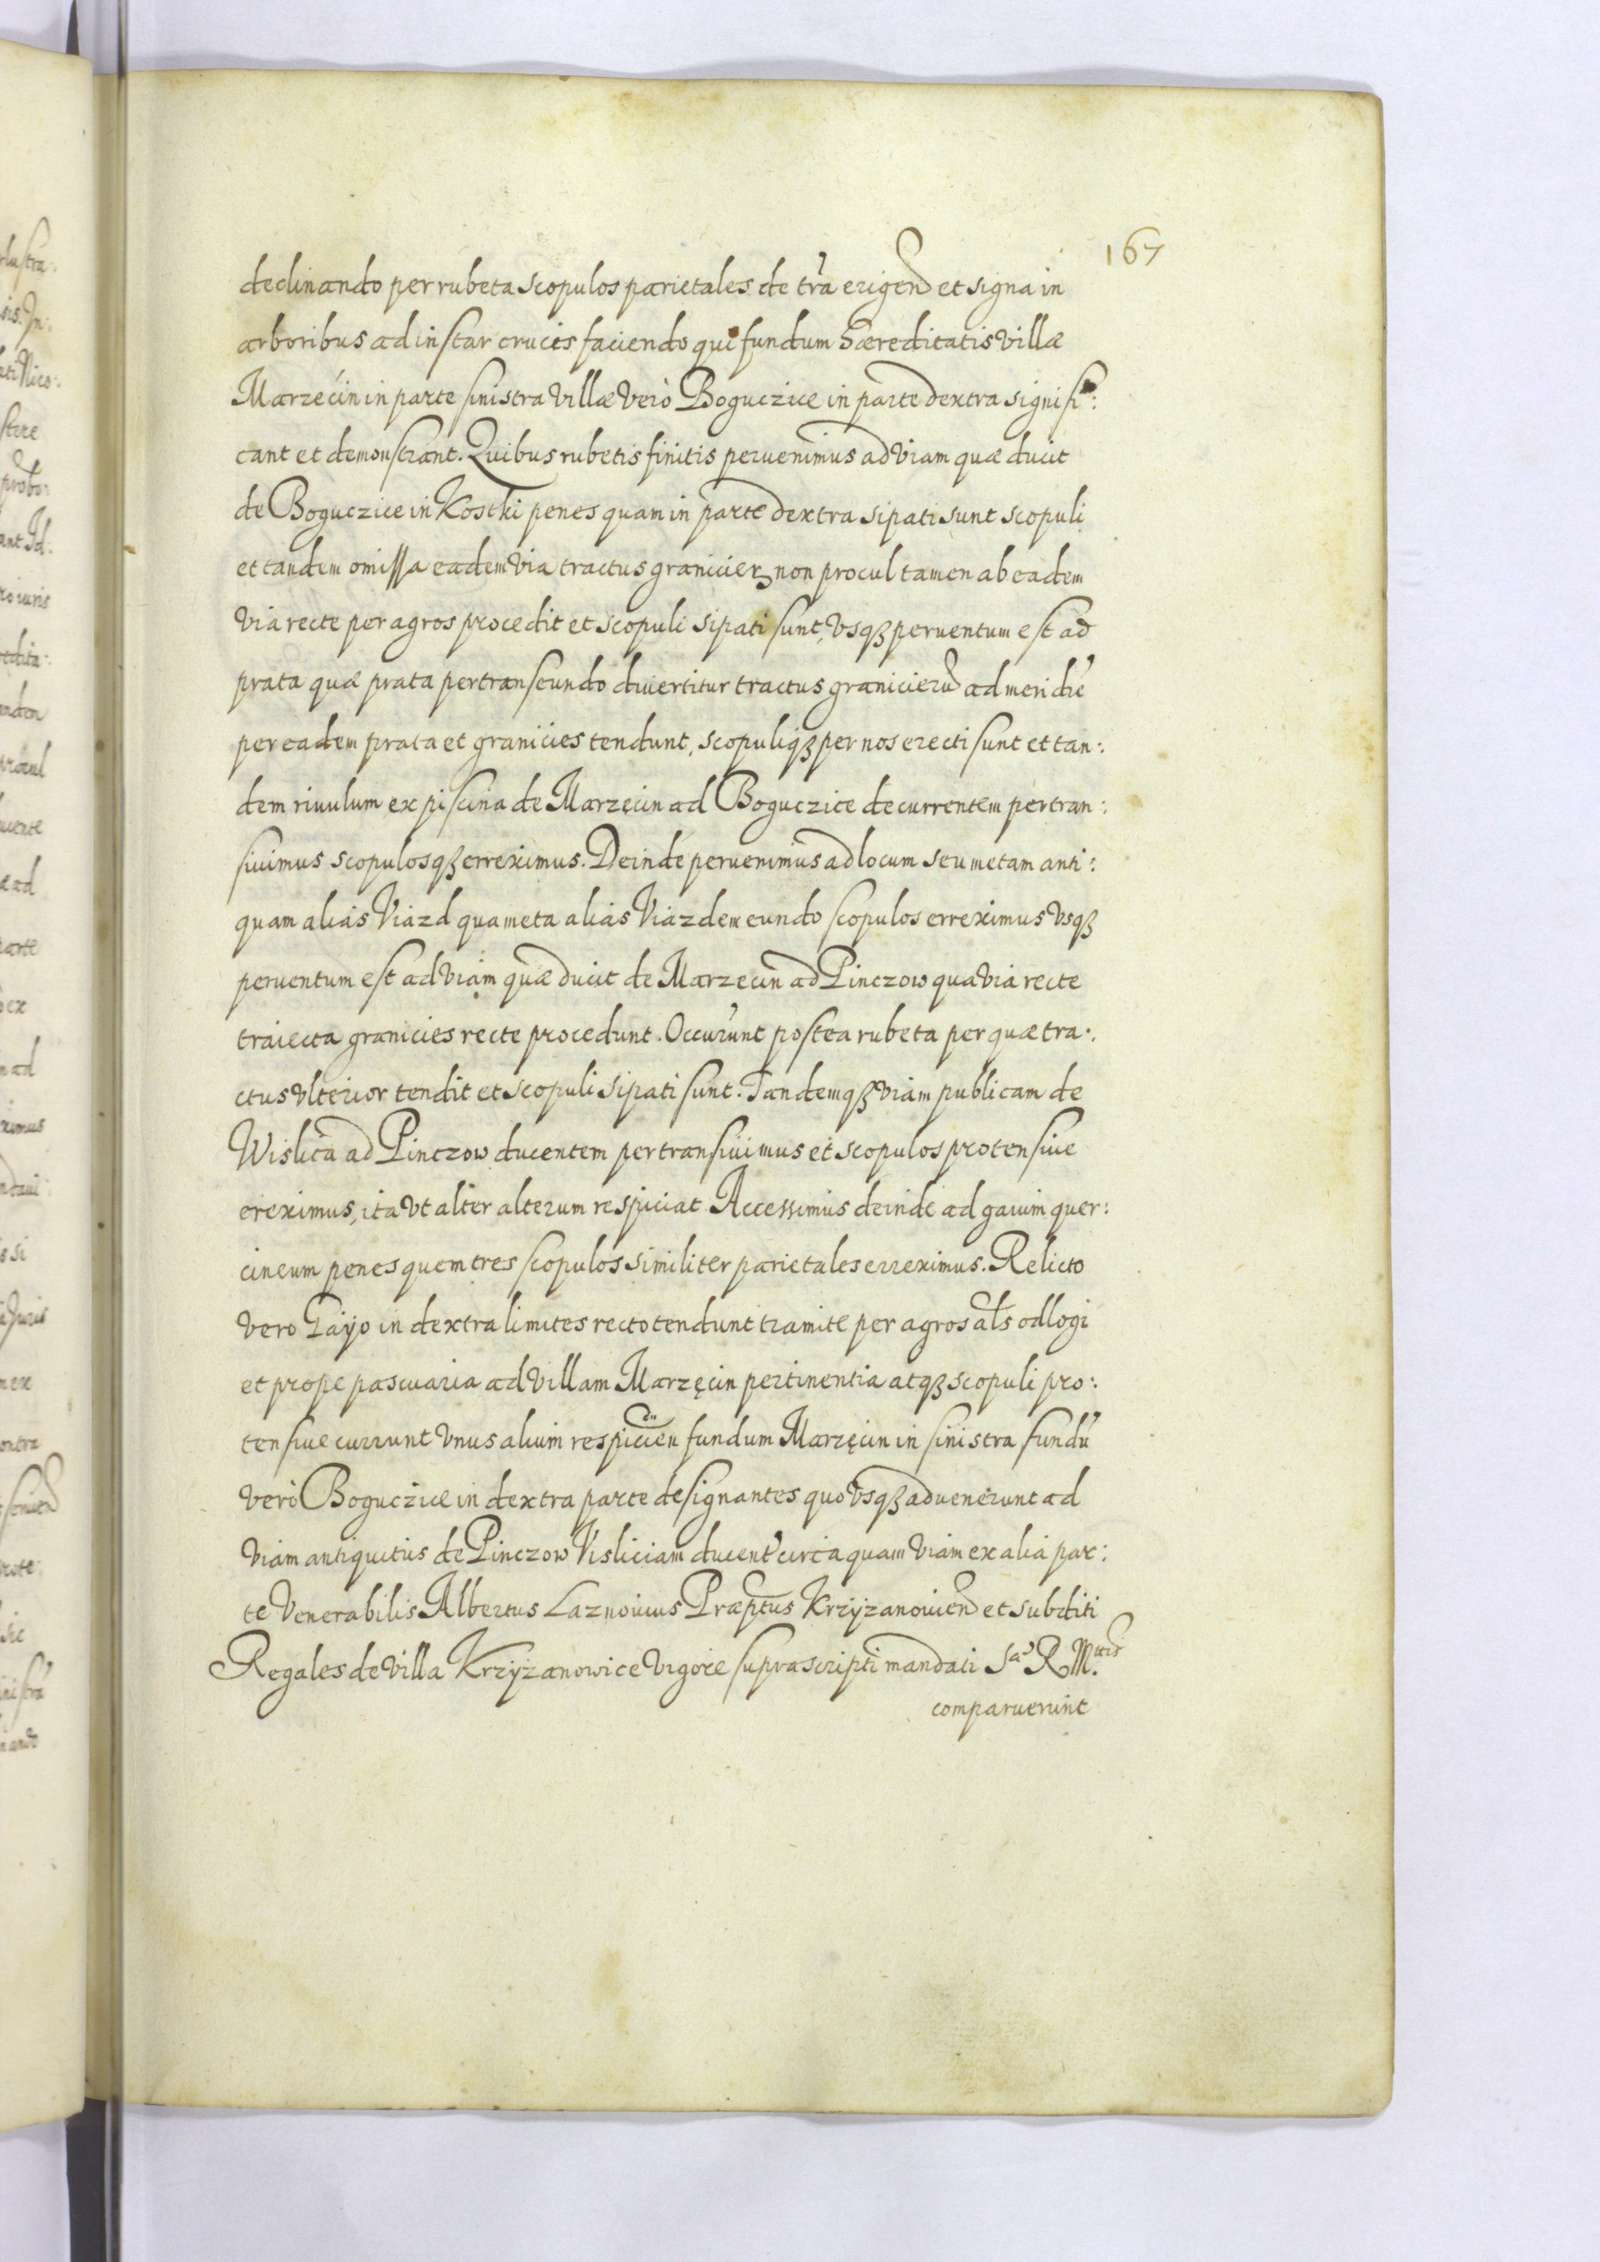 167
declinando per rubeta scopulos parietales de tra erigen et signa in
arboribus ad instar crucis faciendo qui fundum haereditatis villæ
Marzecin in parte sinistra villæ vero Boguczice in parte dextra signifi:
cant et demonstrant. Quibus rubetis finitis peruenimus ad viam quæ ducit
de Boguczice in Kostki penes quam in parte dextra sipati sunt scopuli
et tandem omissa eadem via tractus granicier non procul tamen ab eadem
via recte per agros procedit et scopuli sipati sunt, vsq peruentum est ad
prata quæ prata pertranseundo diuertitur tractus granicieru ad meridie
per eadem prata et granicies tendunt, scopuliq per nos erecti sunt et tan:
dem riuulum ex piscina de Marzęcin ad Boguczice decurrentem pertran:
siuimus scopulosq erreximus. Deinde peruenimus ad locum seu metam anti:
quam alias Viazd qua meta alias Viazdem eundo scopulos erreximus vsq
peruentum est ad viam quæ ducit de Marzecin ad Pinczow qua via recte
traiecta granicies recte procedunt. Occurunt postea rubeta per quæ tra:
ctus vlterior tendit et scopuli sipati sunt. Tandemq viam publicam de
Wislica ad Pinczow ducentem pertransiuimus et scopulos protensiue
ereximus, ita vt alter alterum respiciat. Accessimus deinde ad gaium quer:
cineum penes quem tres scopulos similiter parietales erreximus. Relicto
vero Gayo in dextra limites recto tendunt tramite per agros als odlogi
et prope pascuaria ad villam Marzęcin pertinentia atq scopuli pro:
tensiue currunt vnus alium respicien fundum Marzęcin in sinistra fundu
verò Boguczice in dextra parte designantes quo vsq aduenerunt ad
viam antiquitus de Pinczow Visliciam ducent circa quam viam ex alia par:
te Venerabilis Albertus Laznowius Præptus Krzyżanowicen et subditi
Regales de villa Krzyżanowice vigore suprascripti mandati Sae R Mttis
comparuerunt